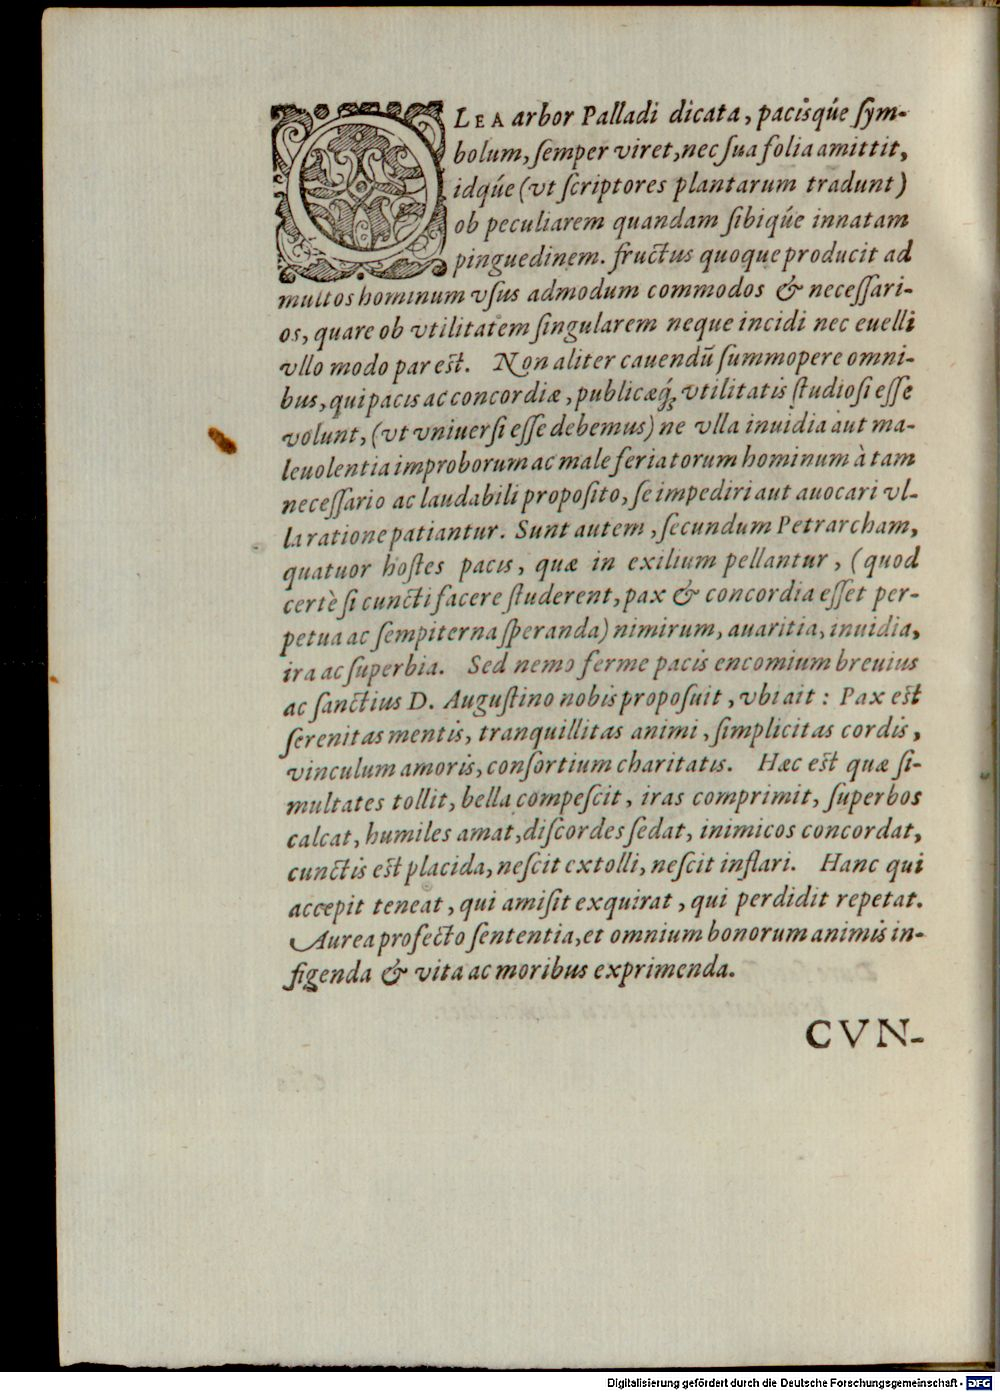 OLEA arbor Palladi dicata, pacisq́ue ſym-
bolum, ſemper viret, nec ſua folia amittit,
idq́ue (vt ſcriptores plantarum tradunt)
ob peculiarem quandam ſibiq́ue innatam
pinguedinem. fructus quoque producit ad
multos hominum vſus admodum commodos & neceſſari-
os, quare ob vtilitatem ſingularem neque incidi nec euelli
vllo modo par est. Non aliter cauendū ſummopere omni-
bus, qui pacis ac concordiæ, publicæq́; vtilitatis ſtudioſi eſſe
volunt, (vt vniuerſi eſſe debemus) ne vlla inuidia aut ma-
leuolentia improborum ac male feriatorum hominum à tam
neceſſario ac laudabili propoſito, ſe impediri aut auocari vl-
la ratione patiantur. Sunt autem, ſecundum Petrarcham,
quatuor hoſtes pacis, quæ in exilium pellantur, (quod
certè ſi cuncti facere ſtuderent, pax & concordia eſſet per-
petua ac ſempiterna ſperanda) nimirum, auaritia, inuidia,
ira ac ſuperbia. Sed nemo ferme pacis encomium breuius
ac ſanctius D. Auguſtino nobis propoſuit, vbi ait: Pax est
ſerenitas mentis, tranquillitas animi, ſimplicitas cordis,
vinculum amoris, conſortium charitatis. Hæc est quæ ſi-
multates tollit, bella compeſcit, iras comprimit, ſuperbos
calcat, humiles amat, diſcordes ſedat, inimicos concordat,
cunctis est placida, neſcit extolli, neſcit inflari. Hanc qui
accepit teneat, qui amiſit exquirat, qui perdidit repetat.
Aurea profecto ſententia, et omnium bonorum animis in-
figenda & vita ac moribus exprimenda.
CVN-
Digitalisierung gefördert durch die Deutsche Forschungsgemeinschaft - DFG